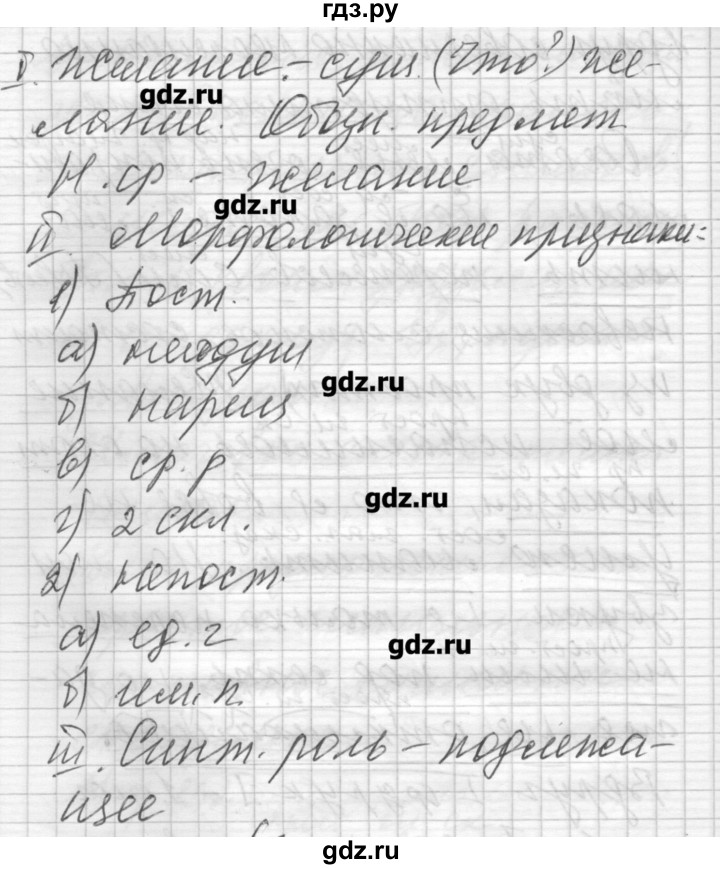 гдз.ру
I. Желание. – сущ. (Что?) же-
gdz.ru
лание. Обозн. предмет
Н. ф – желание
gdz.ru
II. Морфологические признаки:
1) Пост.
а) неодуш
gdz.ru
б) нариц
в) ср. р
gdz.ru
г) 2 скл.
2) Непост.
а) ед. ч
gdz.ru
б) им. п.
III. Синт. роль – подлежа-
щее
gdz.ru